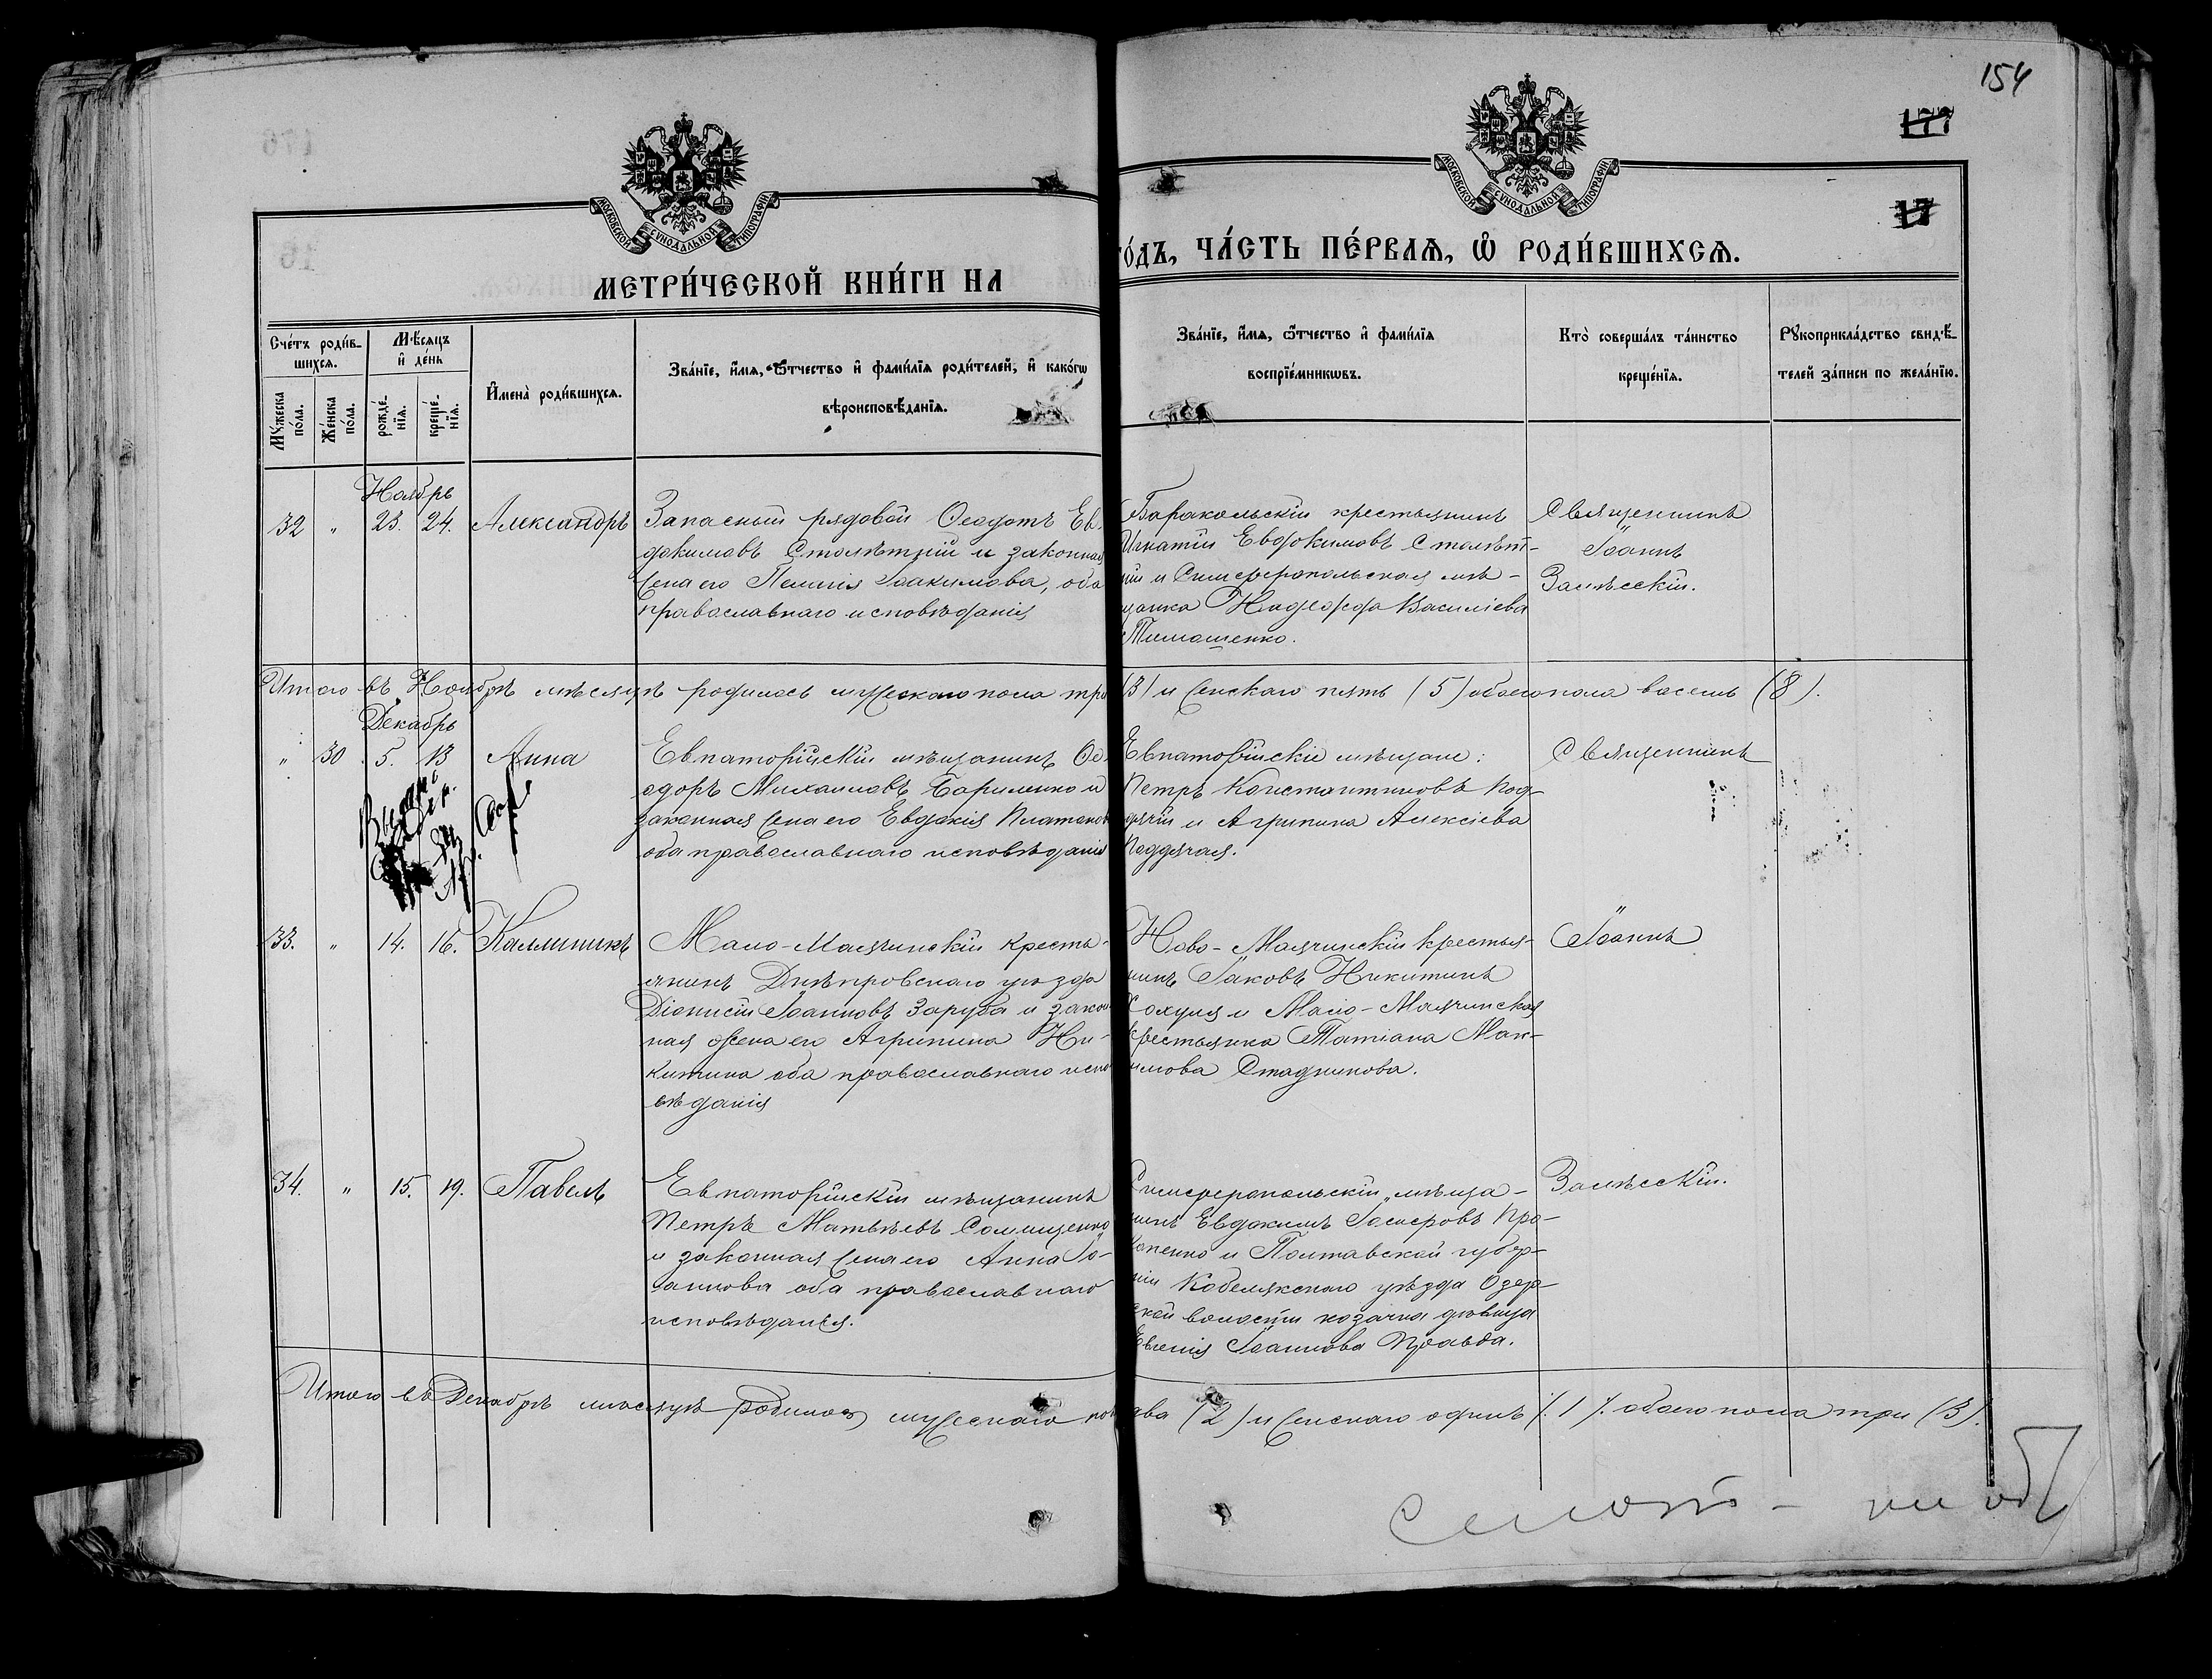 154
177
17
МОСКОВСКОЙ СѴНОДАЛЬНОЙ ТИПОГРАФІИ
МОСКОВСКОЙ СѴНОДАЛЬНОЙ ТИПОГРАФІИ
МЕТРИ́ЧЕСКОЙ КНИ́ГИ НА
ГО́ДЪ, ЧА́СТЬ ПЕ́РВАЯ, Ѡ҆ РОДИ́ВШИХСЯ.
Сче́тъ роди́в-
шихся.
Му́жеска по́ла.
Же́нска по́ла.
Мѣ́сяцъ
и҆ де́нь
рожде́-
нїя.
креще́-
нїя.
И҆мена̀ роди́вшихся.
Зва́нїе, и҆́мя, ѻ҆́тчество и҆ фами́лїя роди́телей, и҆ како́гѡ
вѣроисповѣ́данїя.
Зва́нїе, и҆́мя, ѻ҆́тчество и҆ фами́лїя
воспрїе́мникѡвъ.
Кто̀ соверша́лъ та́инство
креще́нїя.
Рꙋкоприкла́дство свидѣ́-
телей за́писи по жела́нїю.
Ноябрь
32 " 23. 24. Александръ
Запасный рядовой Ѳеодотъ Ев-
докимовъ Столѣтній и законная
жена его Пелагія Іоакимова, оба
православнаго исповѣданія
Баракольскій крестьянинъ
Игнатій Евдокимовъ Столѣт-
ній и Симферопольская мѣ-
щанка Надежда Василіева
Тимошенко.
Священникъ
Іоаннъ
Залѣсскій.
Итого въ Ноябрѣ мѣсяцѣ родилось мужескаго пола три (3) и женскаго пять (5) обоего пола восемь (8).
Декабрь
" 30 5. 13 Анна
Евпаторійскій мѣщанинъ Ѳе-
одоръ Михаиловъ Бориленко и
законная жена его Евдокія Платонов
оба православнаго исповѣданія
Евпаторійскіе мѣщане:
Петръ Константиновъ Под-
дячій и Агрипина Алексіева
Поддячая.
Священникъ
33. " 14. 16. Каллиникъ
Мало-Маячинскій кресть-
янинъ Днѣпровскаго уѣзда
Діонисій Іоанновъ Заруба и закон
ная жена его Агрипина Ни-
китина оба православнаго испо
вѣданія
Ново-Маячинскій крестья-
нинъ Іаковъ Никитинъ
и Мало-Маячинская
крестьянка Татіана Мак-
имова Стадникова.
Іоаннъ
34. " 15. 19. Павелъ
Евпаторійскій мѣщанинъ
Петръ Матвѣевъ
и законная жена его Анна Іо-
аннова оба православнаго
исповѣданія.
Симферопольскій мѣща-
нинъ Евдокимъ Про-
копенко и Полтавской губер-
ніи Кобелякскаго уѣзда Озер-
ской волости козачка дѣвица
Евгенія Іоаннова Правда.
Залѣсскій.
Итого въ Декабрѣ мѣсяцѣ родилось мужескаго пол два (2) и женскаго одинъ /.1/. обоего пола три (3).